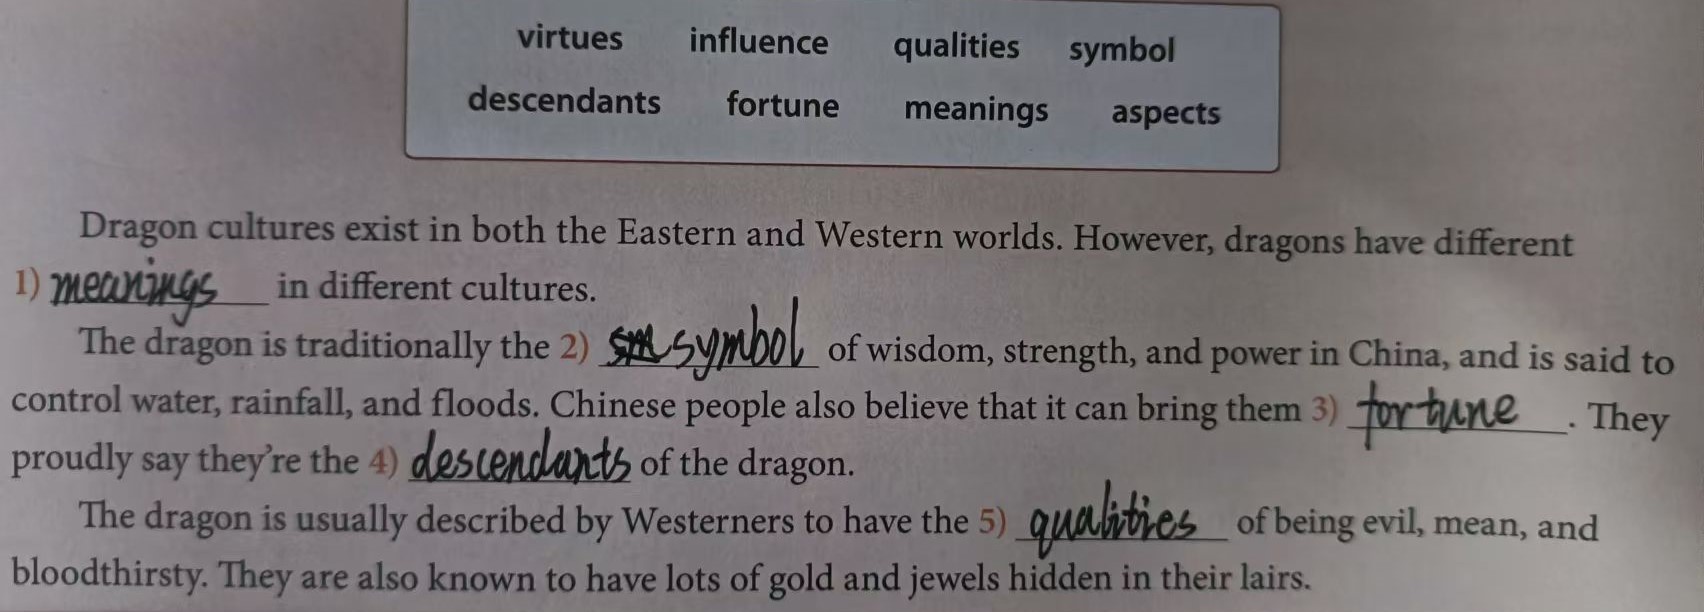 virtues influence qualities symbol
descendants fortune meanings aspects
Dragon cultures exist in both the Eastern and Western worlds. However, dragons have different
1) meanings in different cultures.
The dragon is traditionally the 2) symbol of wisdom, strength, and power in China, and is said to
control water, rainfall, and floods. Chinese people also believe that it can bring them 3) fortune. They
proudly say they're the 4) descendants of the dragon.
The dragon is usually described by Westerners to have the 5) qualities of being evil, mean, and
bloodthirsty. They are also known to have lots of gold and jewels hidden in their lairs.